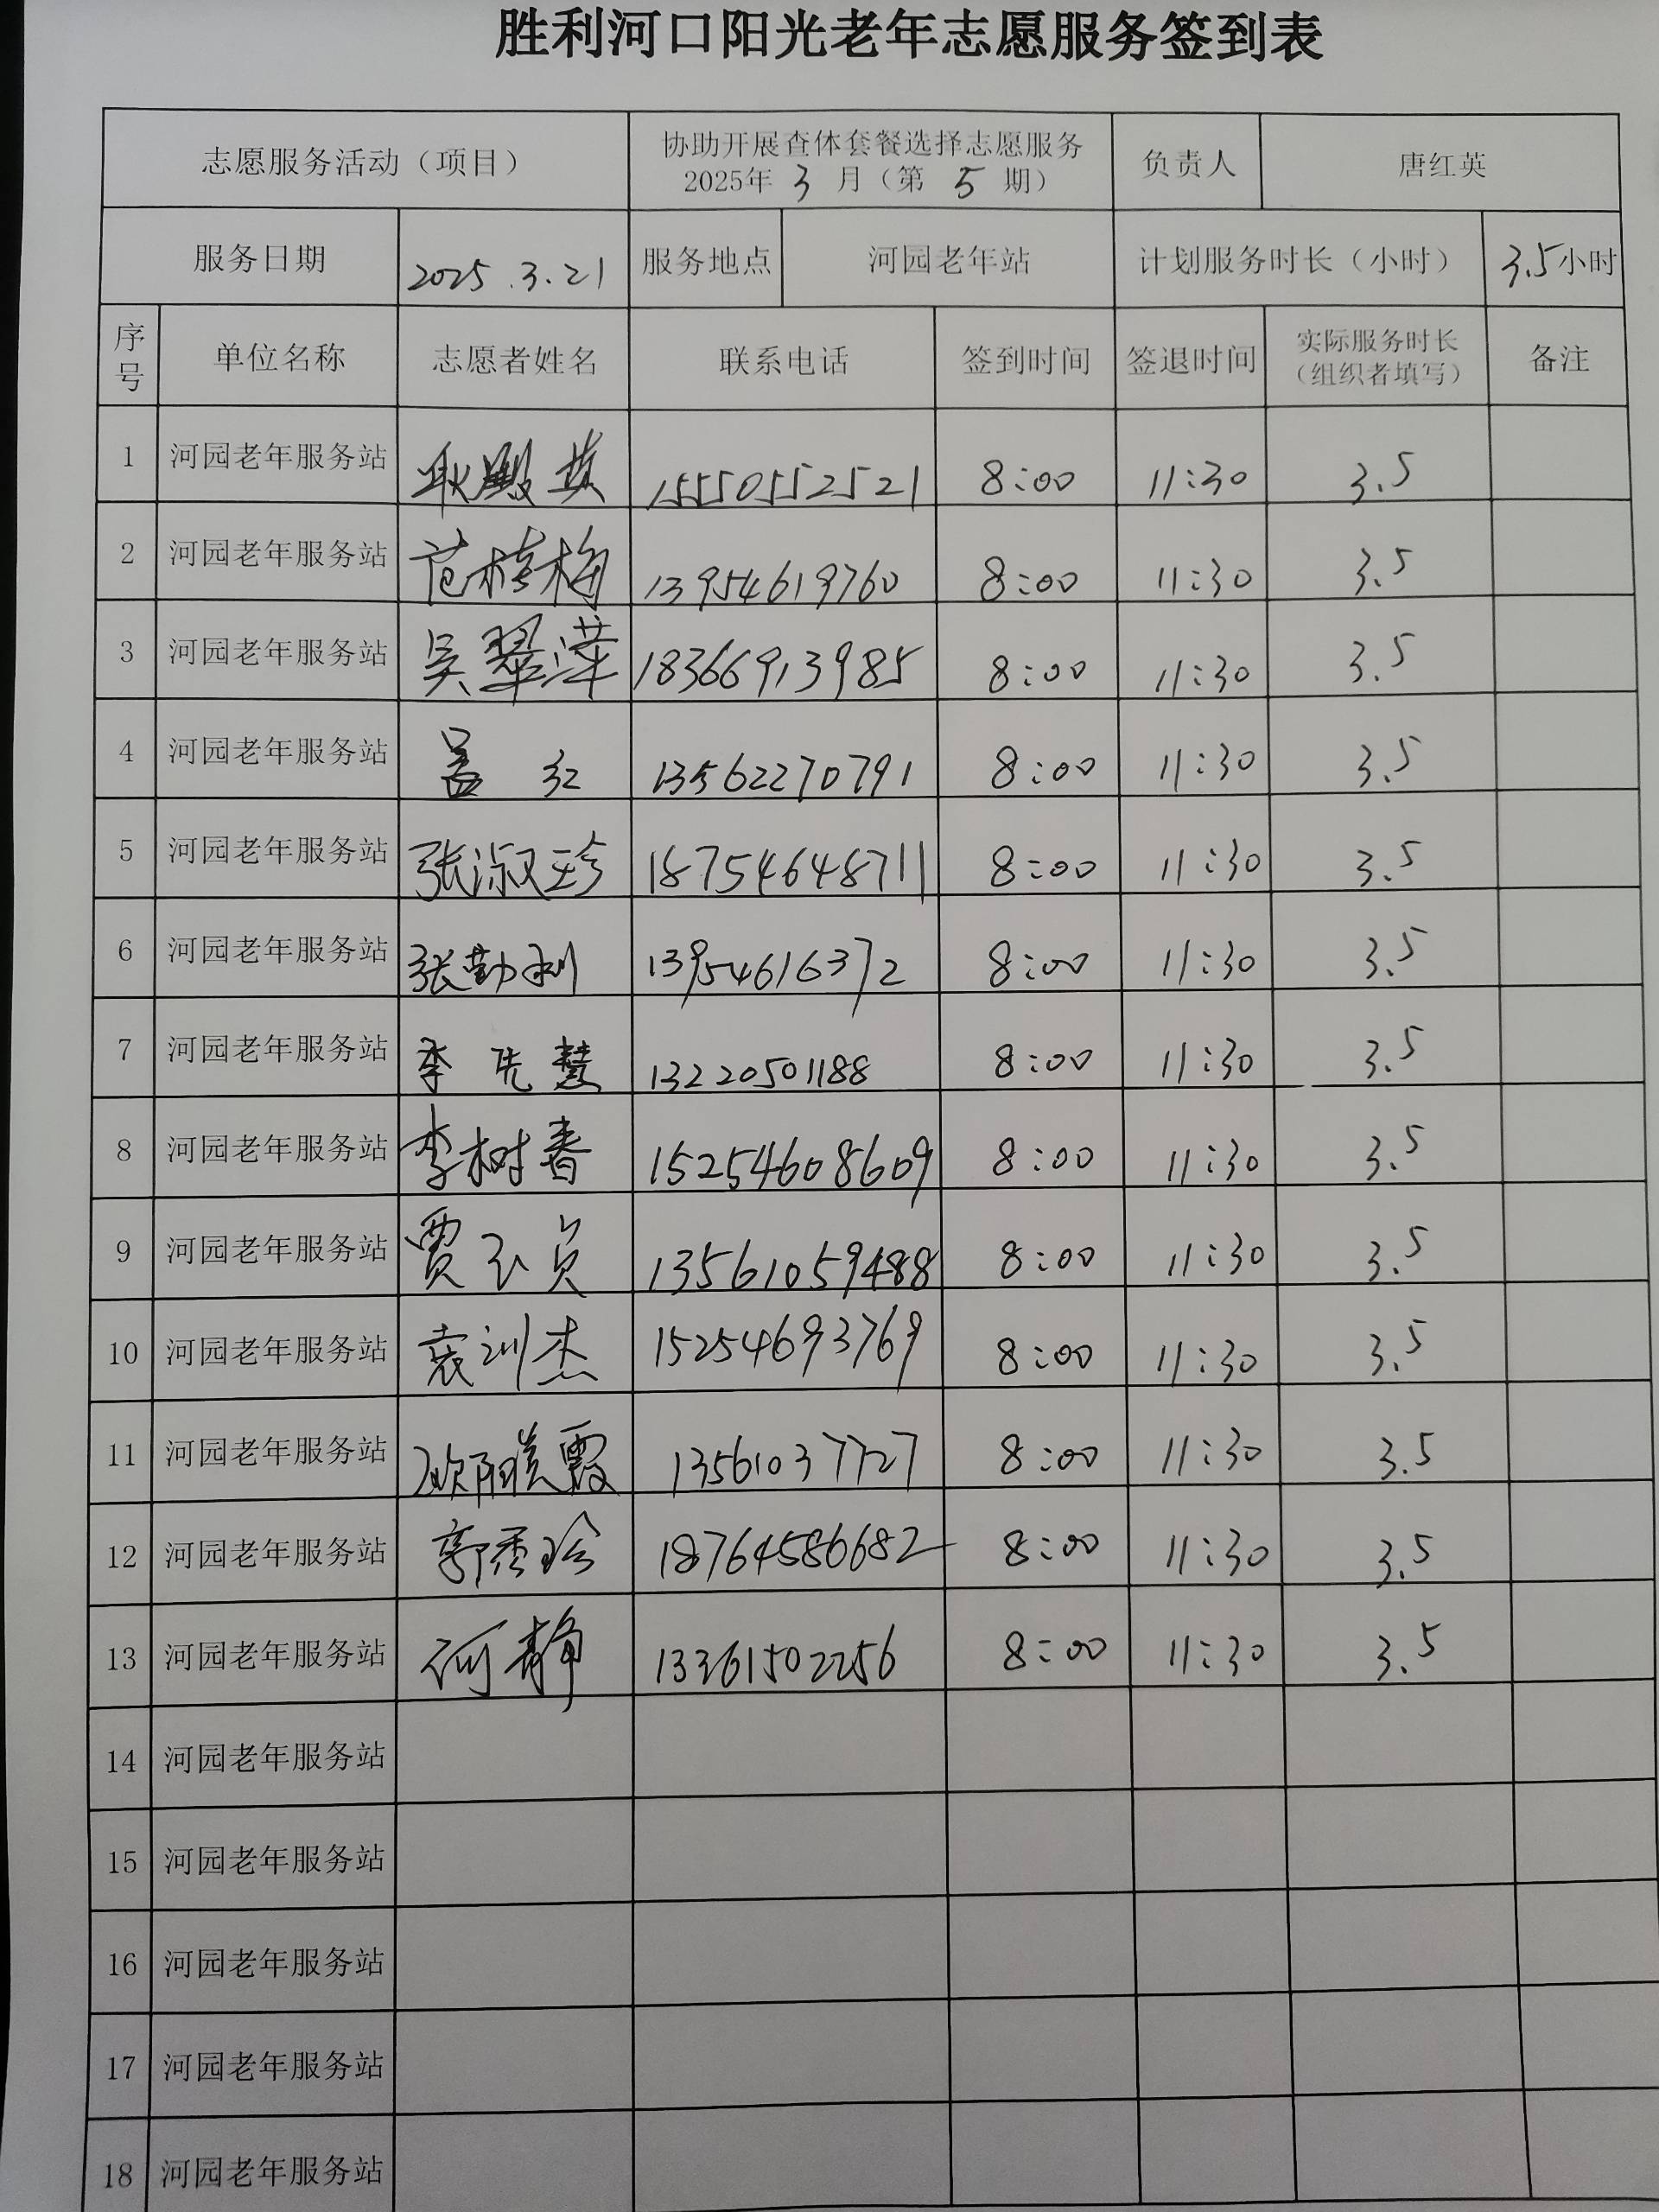 胜利河口阳光老年志愿服务签到表
志愿服务活动（项目） 协助开展查体套餐选择志愿服务 2025年 3 月（第 5 期） 负责人 唐红英
服务日期 2025.3.21 服务地点 河园老年站 计划服务时长（小时） 3.5小时
序号 单位名称 志愿者姓名 联系电话 签到时间 签退时间 实际服务时长（组织者填写） 备注
1 河园老年服务站 耿殿英 15550552521 8:00 11:30 3.5
2 河园老年服务站 范梅 13954619760 8:00 11:30 3.5
3 河园老年服务站 吴翠萍 18366913985 8:00 11:30 3.5
4 河园老年服务站 盖红 13562270791 8:00 11:30 3.5
5 河园老年服务站 张淑珍 18754648711 8:00 11:30 3.5
6 河园老年服务站 张勤利 13954616372 8:00 11:30 3.5
7 河园老年服务站 李先慧 13220501188 8:00 11:30 3.5
8 河园老年服务站 李树春 15254608609 8:00 11:30 3.5
9 河园老年服务站 贾玉贞 13561059488 8:00 11:30 3.5
10 河园老年服务站 袁训杰 15254693769 8:00 11:30 3.5
11 河园老年服务站 欧阳霞 13561037727 8:00 11:30 3.5
12 河园老年服务站 郭秀珍 18764586682 8:00 11:30 3.5
13 河园老年服务站 何静 13361502256 8:00 11:30 3.5
14 河园老年服务站
15 河园老年服务站
16 河园老年服务站
17 河园老年服务站
18 河园老年服务站